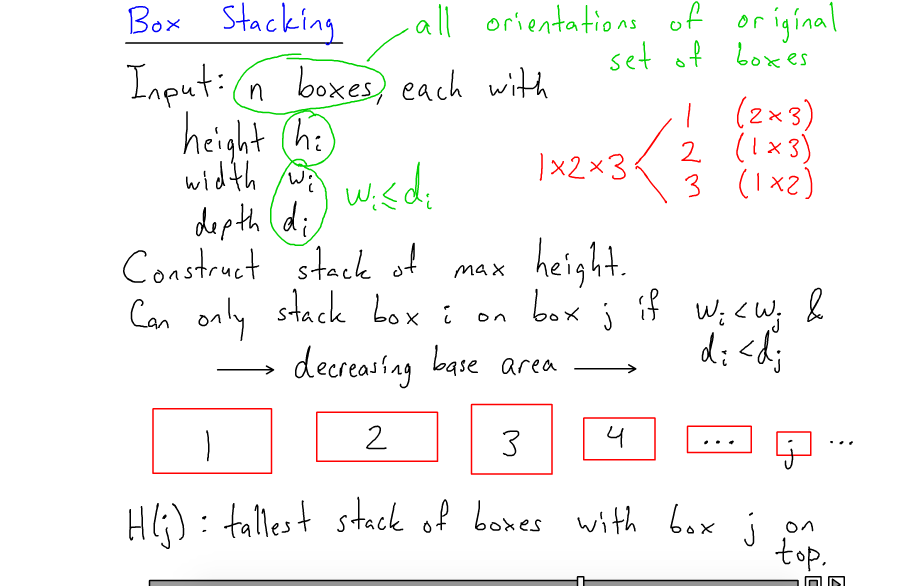 Box Stacking
all orientations of original
set of boxes
Input: n boxes, each with
height hi
width wi
depth di
wi ≤ di
1x2x3
1 (2x3)
2 (1x3)
3 (1x2)
Construct stack of max height.
Can only stack box i on box j if wi < wj &
di < dj
→ decreasing base area →
1 2 3 4 ... j ...
H(j): tallest stack of boxes with box j on
top.